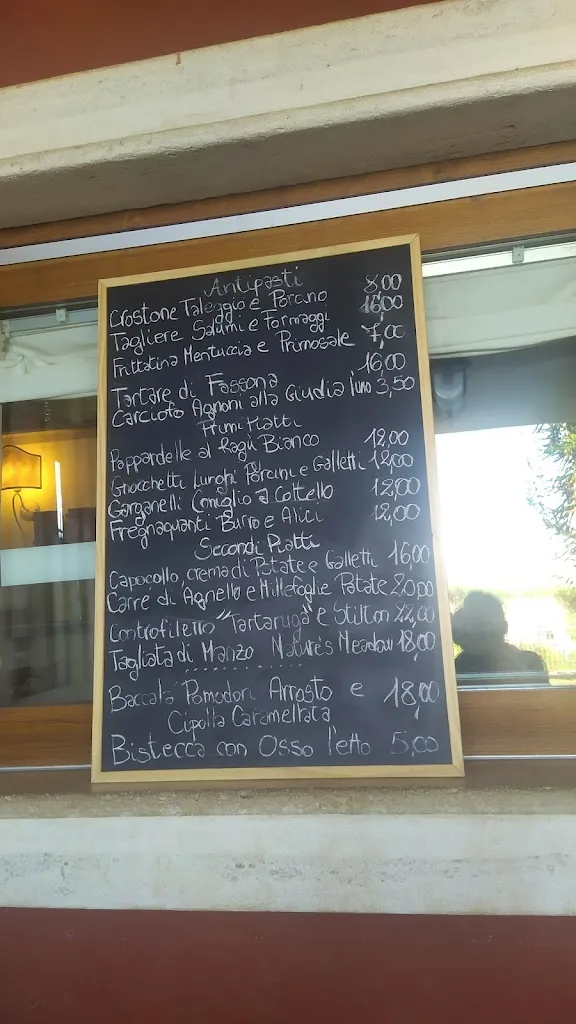 Antipasti
Crostone Taleggio e Porcino 8,00
Tagliere Salumi e Formaggi 16,00
Frittatina Mentuccia e Primosale 7,00
Tartare di Fassona 16,00
Carciofo Agnoni alla Giudia l'uno 3,50
Primi Piatti
Pappardelle al Ragù Bianco 12,00
Gnocchetti Lunghi Porcini e Galletti 12,00
Garganelli Coniglio a Coltello 12,00
Fregnaquanti Burro e Alici 12,00
Secondi Piatti
Capocollo, crema di Patate e Galletti 16,00
Carrè di Agnello e Millefoglie Patate 20,00
Controfiletto "Tartaruga" e Stilton 22,00
Tagliata di Manzo Nature's Meadow 18,00
Baccalà Pomodori Arrosto e 18,00
Cipolla Caramellata
Bistecca con Osso l'etto 5,00